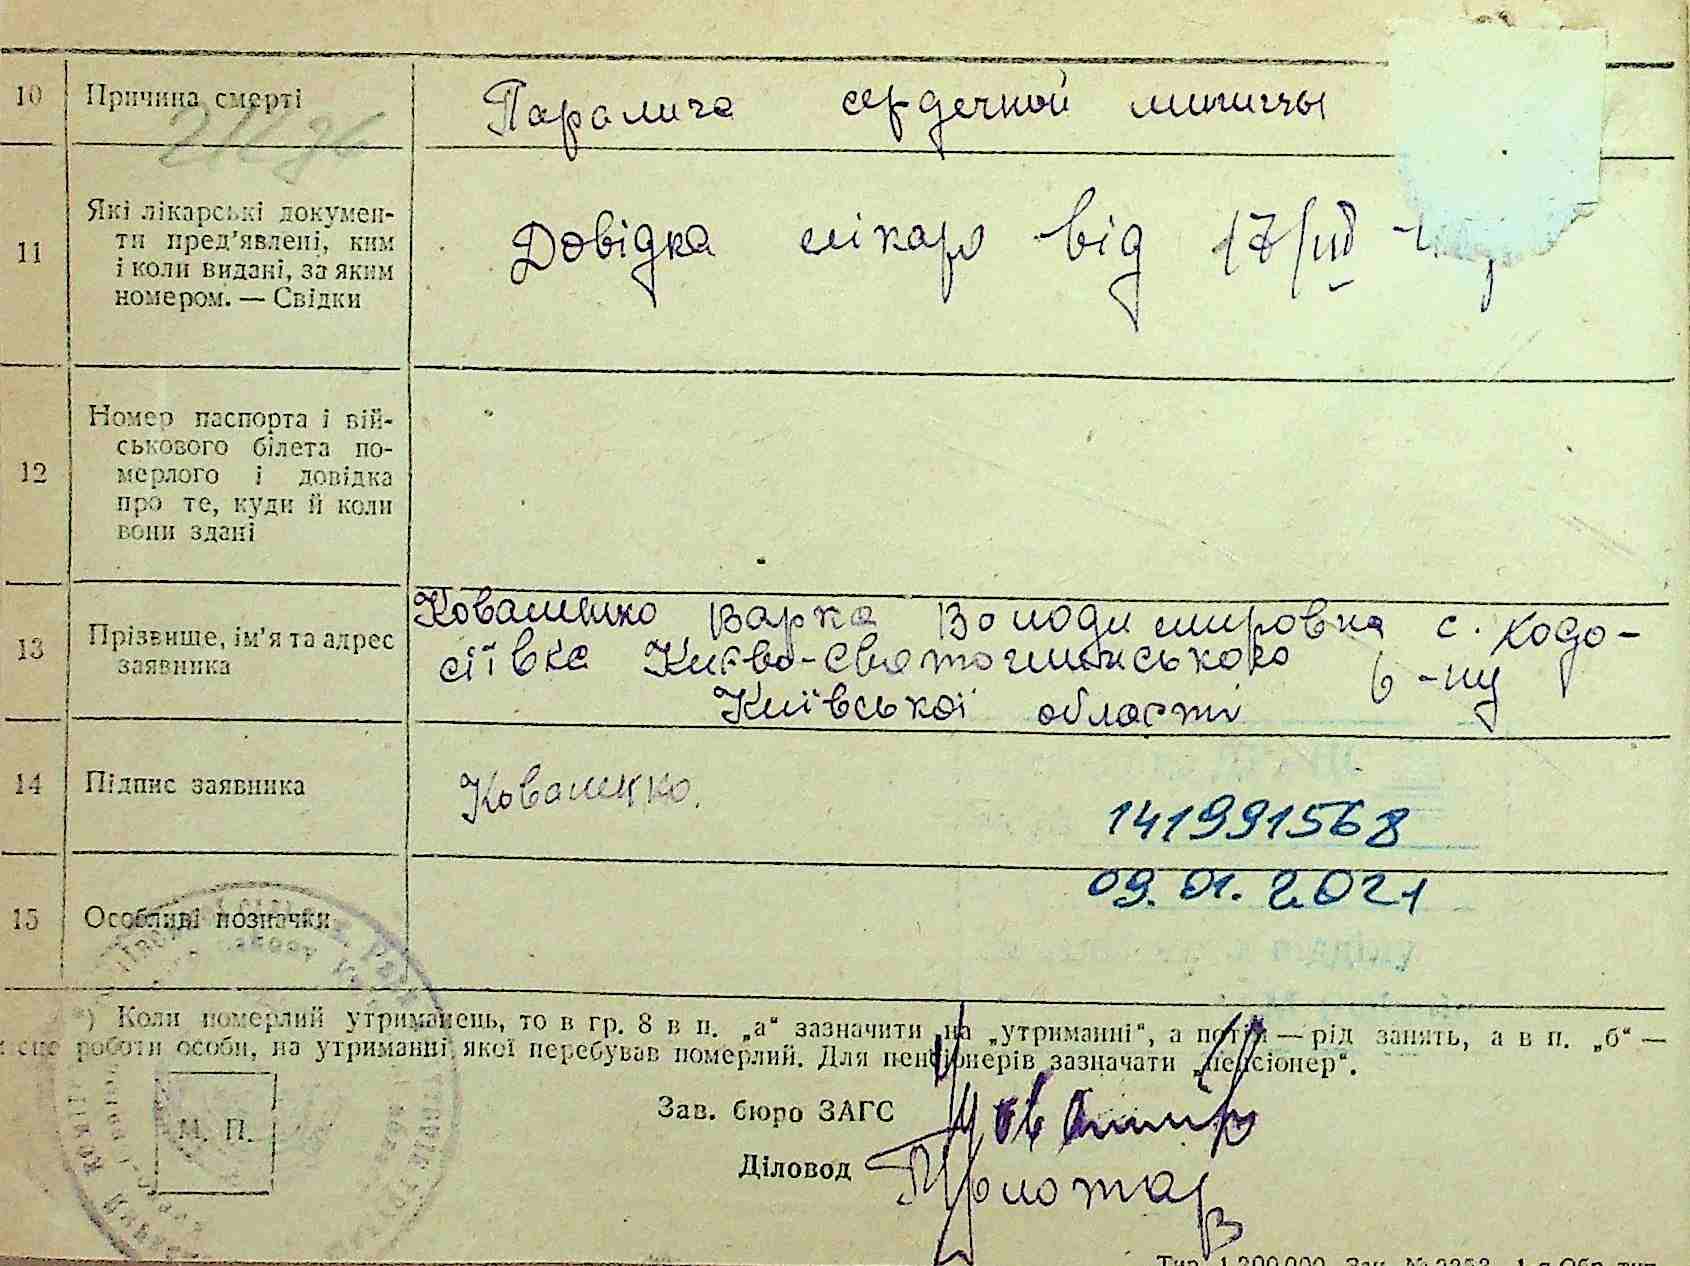 10 Причина смерті Паралича сердечной мишицы
11 Які лікарські докумен-
ти пред'явлені, ким
і коли видані, за яким
номером. — Свідки
Довідка лікаря від 17/VIII
12 Номер паспорта і вій-
ськового білета по-
мерлого і довідка
про те, куди й коли
вони здані
13 Прізвище, ім'я та адрес
заявника
Коваленко Варка Володимировна с. Ходо-
сіївка Києво-Святошинського р-ну
Київської області
14 Підпис заявника Коваленко.
141991568
09.01.2021
15 Особливі позначки
*) Коли померлий утриманець, то в гр. 8 в п. „а“ зазначити на „утриманні“, а потім — рід занять, а в п. „б“ —
місце роботи особи, на утриманні якої перебував померлий. Для пенсіонерів зазначати „пенсіонер“.
Зав. бюро ЗАГС
М. П.
Діловод